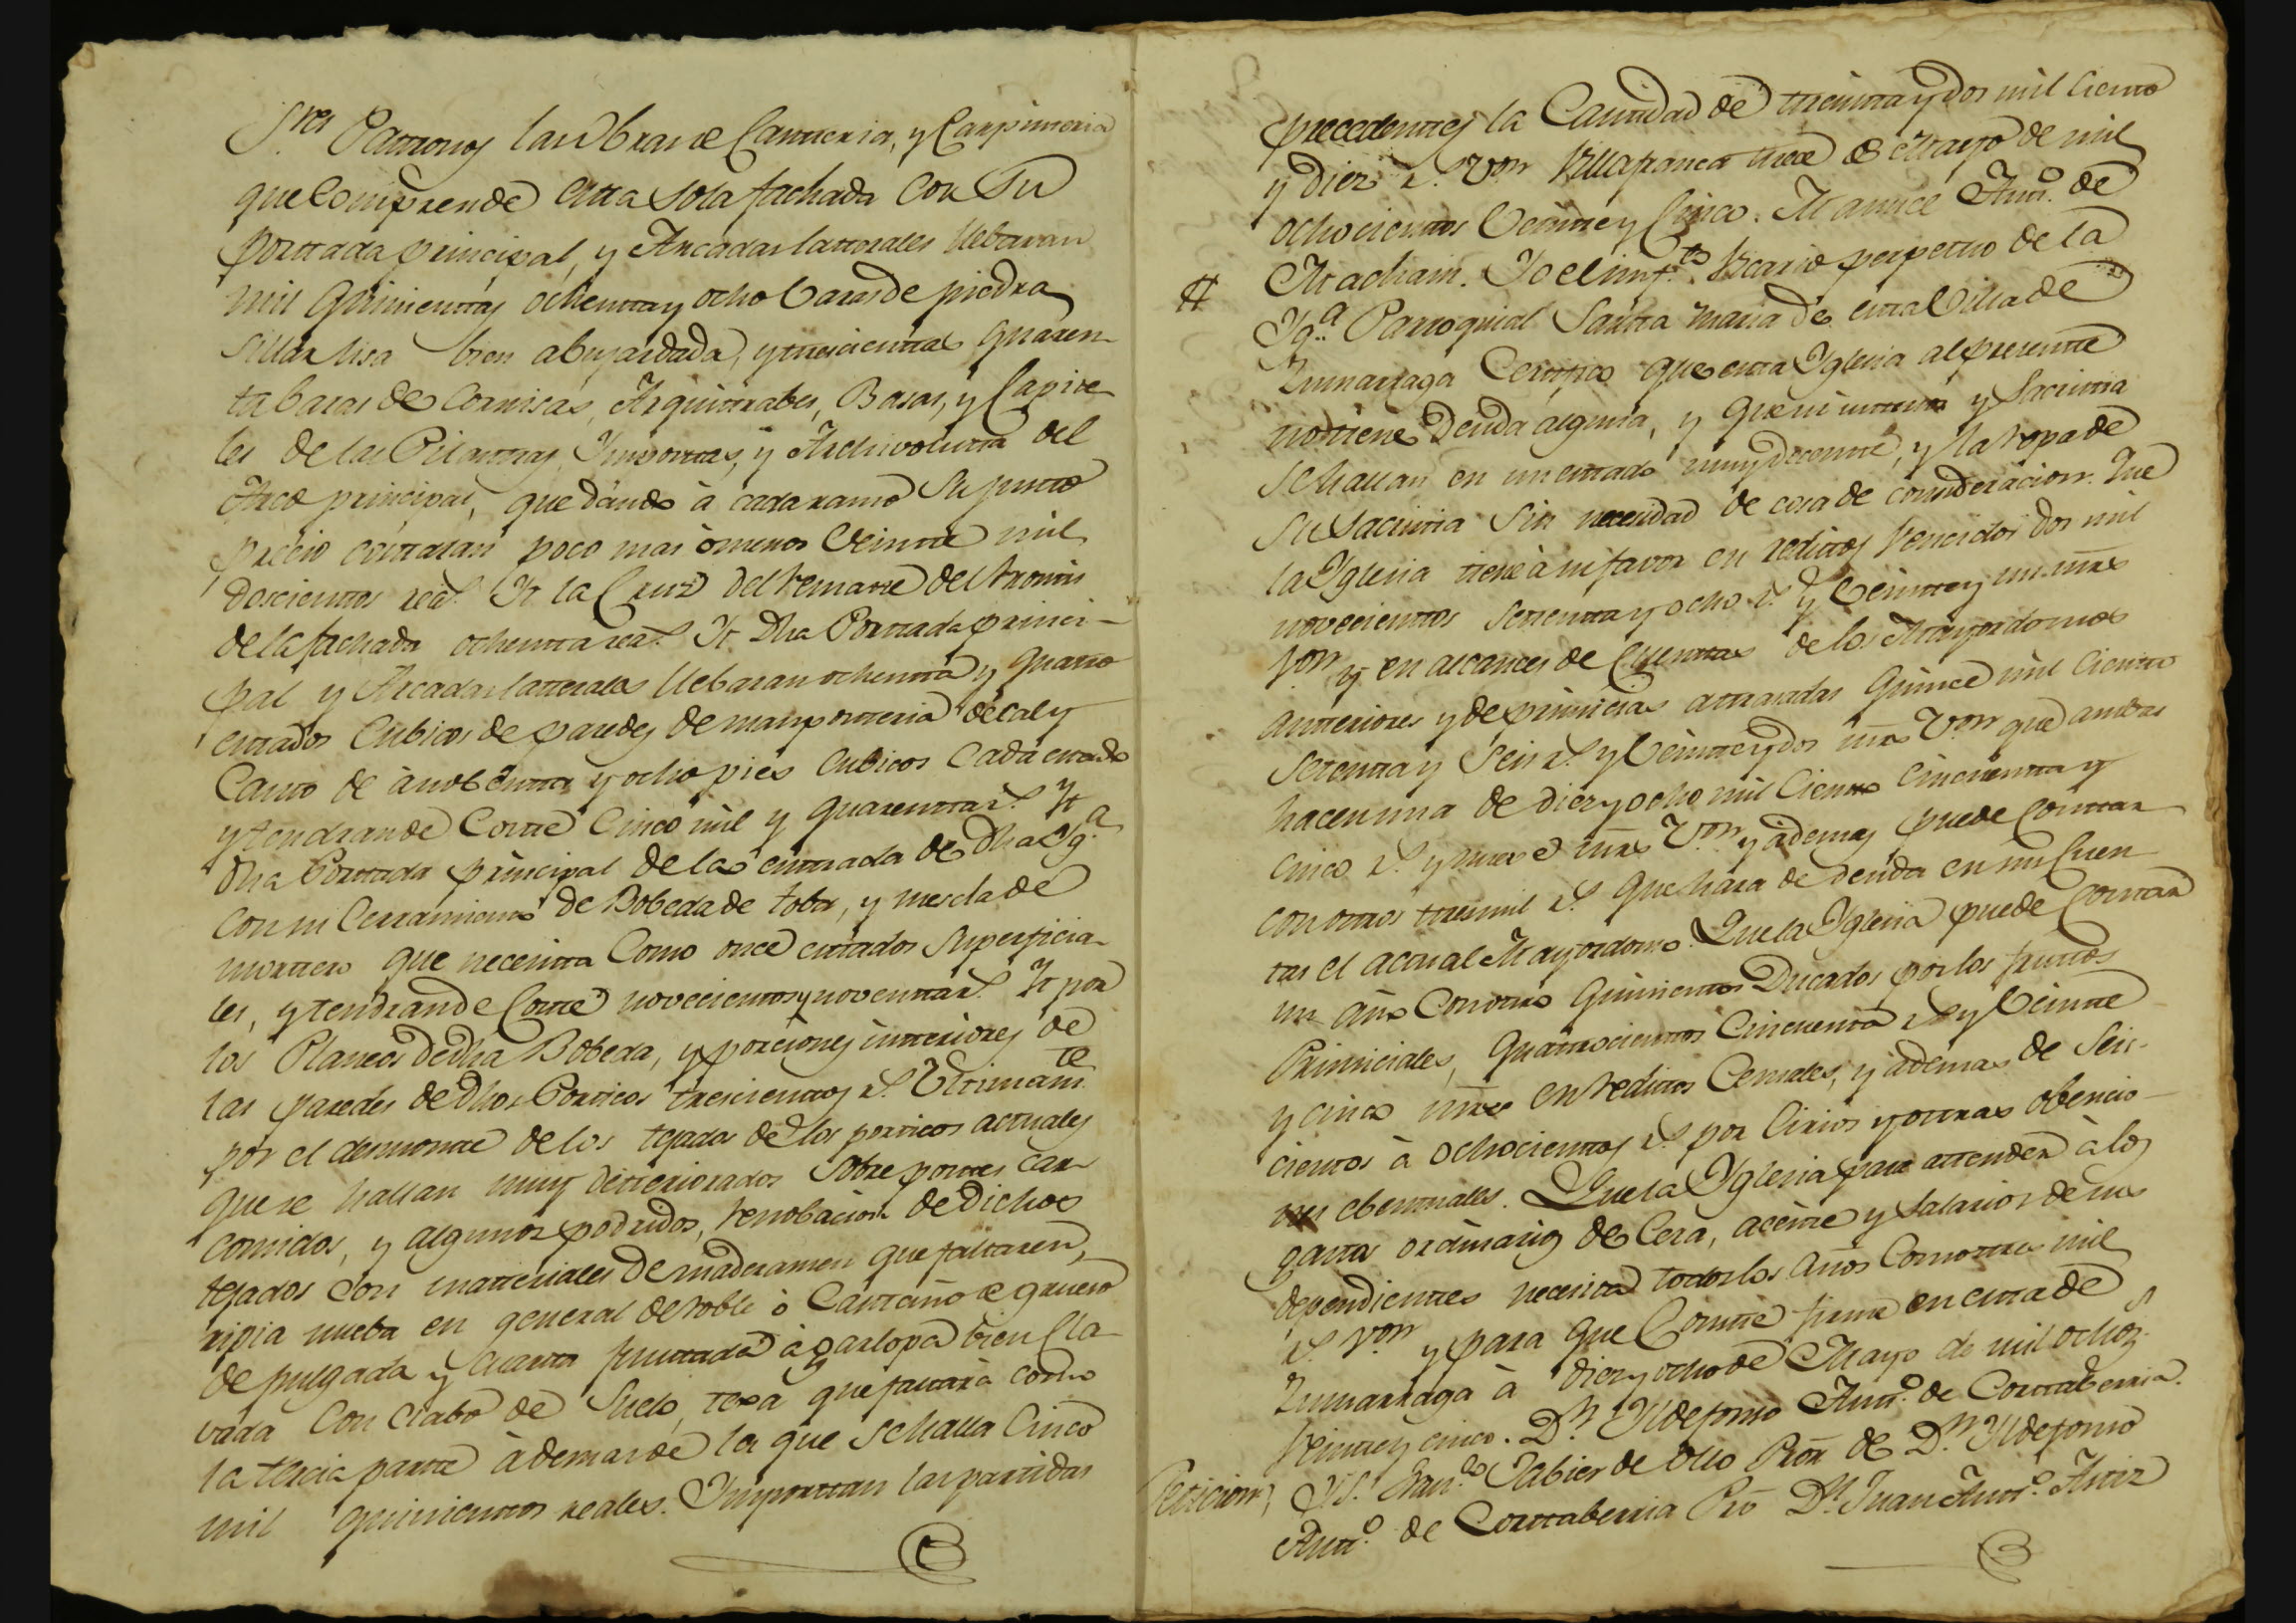 S.res Patronos las Obras de Canteria, y Carpinteria
que Comprende esta sola fachada con su
portada principal, y Arcadas laterales llebaran
mil quinientas ochenta y ocho baras de piedra
sillar lisa bien abujardada, y trescientas quaren-
ta baras de Cornisas, Arquitrabes, Basas, y Capite-
les de las Pilastras, Impostas, y Archivolutta del
Arco principal, que dando à cada ramo su justo
precio costaran poco mas ò menos Veinte mil
doscientos rea.s It. la Cruz del remate del Frontis
de la fachada ochenta rea.s It. Dha Portada princi-
pal y Arcadas laterales llebaran ochenta y quatro
estados Cubicos de paredes de mamposteria de cal y
Canto de à nobenta y ocho pies Cubicos Cada estado
y tendran de Coste Cinco mil y quarenta r.s It.
Dha Portada principal de la entrada de Dha Yg.a
con su Cerramiento de Bobeda de toba, y mescla de
mortero que necesita Como once estados Superficia-
les, y tendran de Coste novecientos y noventa r.s It. por
los Planeos de dha Bobeda, y porciones interiores de
las paredes de Dhos Porticos trescientos r.s Ultimam.te
por el desmonte de los tejados de los porticos actuales
que se hallan muy deteriorados sobre postes car-
comidos, y algunos podridos, renobacion de Dichos
tejados con materiales de maderamen que faltaren,
ripia nueba en general de roble ò Castaño de grueso
de pulgada y quarta juntada à garlopa bien Cla-
vada con clabo de suelo, texa que faltarà como
la tercia parte à demas de la que se halla Cinco
mil quinientos reales. Importan las partidas
precedentes la Cantidad de treinta y dos mil Ciento
y Diez r.s V.on Villafranca trece de Mayo de mil
ochocientos Veinte y Cinco. Manuel Ant.o de
Yo el infr.to Vicario perpetuo de la
Yg.a Parroquial Santa Maria de esta Villa de
Zumarraga Certifico que esta Yglesia al presente
no tiene Deuda alguna, y que ni y Sacristia
se hallan en un estado muy decente, y la ropa de
su Sacristia sin necesidad de cosa de consideracion. Que
la Yglesia tiene à su favor en reditos vencidos dos mil
novecientos setenta y ocho r.s y Veinte y un mrs
von y en alcances de Cuentas de los Mayordomos
anteriores y de primicias atrasadas Quince mil Ciento
setenta y Seis r.s y Veinte y dos mrs V.on que ambas
hacen una de Diez y ocho mil Ciento Cincuenta y
Cinco r.s y nueve mrs V.on y à demas puede Contar
con otros tres mil r.s que hara de deuda en sus Cuen-
tas el actual Mayordomo. Que la Yglesia puede Contar
un año Con otro Quinientos Ducados por los frutos
Primiciales, quatrocientos Cincuenta r.s y Veinte
y cinco mrs en reditos Censales, y à demas de Seis-
cientos à ochocientos r.s por Cirios y otras obencio-
nes ebentuales. Que la Yglesia para attender à los
gastos ordinarios de Cera, aceite y Salarios de sus
dependientes necesita todos los años Como tres mil
r.s V.on y para que Conste firmé en esta de
Zumarraga à Diez y ocho de Mayo de mil ochoz.s
Veinte y cinco. D.n Yldefonso Ant.o de Cortaberria.
Peticion, Xabier de Olio Pror de D.n Yldefonso
Ant.o de Cortaberria D.n Juan Ant.o